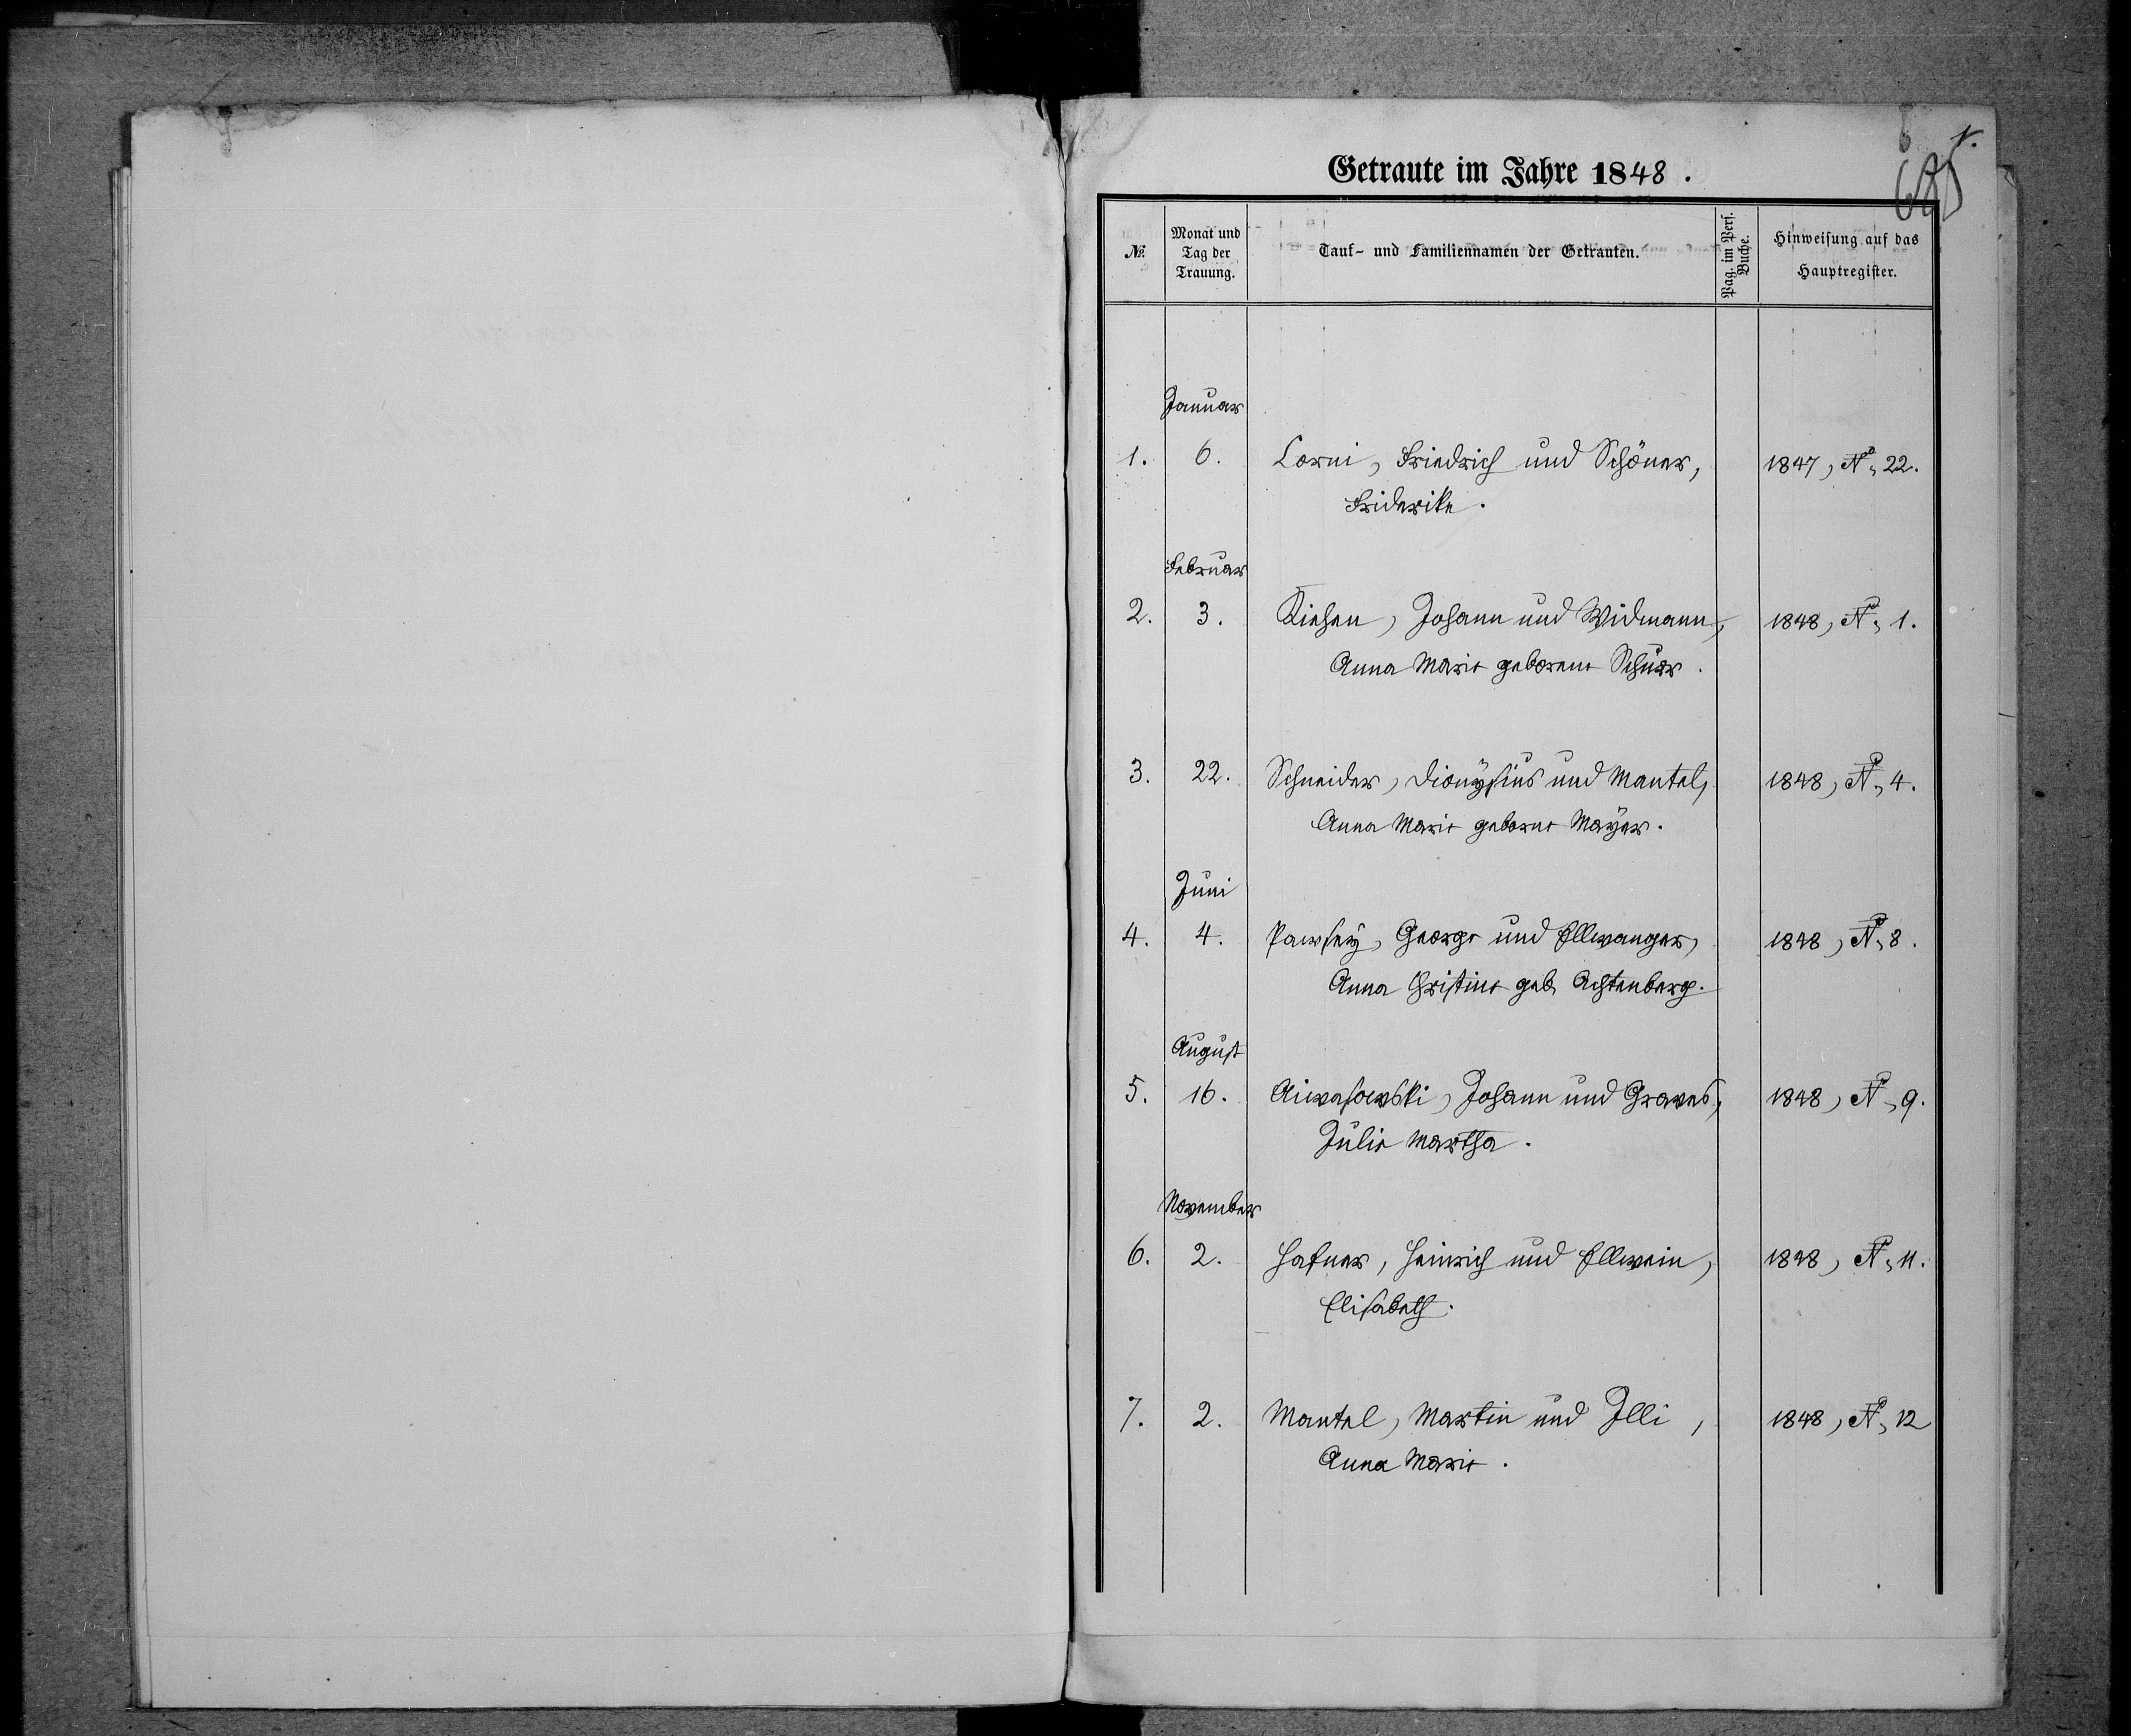 1.
Getraute im Jahre 1848.
№
Monat und Tag der Trauung.
Tauf- und Familiennamen der Getrauten.
Pag. im Pers. Buche.
Hinweisung auf das Hauptregister.
Januar
1. 6. Corni, Friedrich und Schöner, 1847, № 22.
Friderike.
Februar
2. 3. Kiehen, Johann und Widmann, 1848, № 1.
Anna Marie geborene Schürr.
3. 22. Schneider, Dionÿsius und Mantel, 1848, № 4.
Anna Marie geborne Maÿer.
Juni
4. 4. Pawseÿ, George und Ellwanger, 1848, № 8.
Anna Christine geb. Achtenberg.
August
5. 16. Aiwasowski, Johann und Graves, 1848, № 9.
Julie Martha.
November
6. 2. Hafner, Heinrich und Ellwein, 1848, № 11.
Elisabeth.
7. 2. Mantel, Martin und Illi, 1848, № 12
Anna Marie.